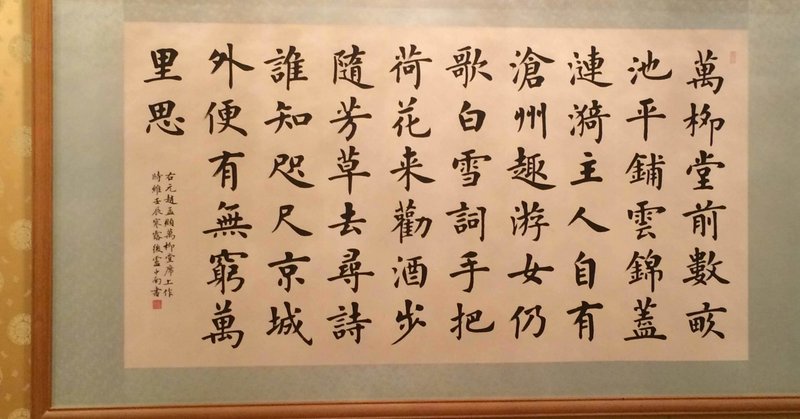 萬柳堂前數畝
池平鋪雲錦蓋
漣漪主人自有
滄州趣游女仍
歌白雪詞手把
荷花来勸酒步
隨芳草去尋詩
誰知咫尺京城
外便有無窮萬
里思
右元趙孟頫萬柳堂席上作
時維壬辰寒露後盧中南書